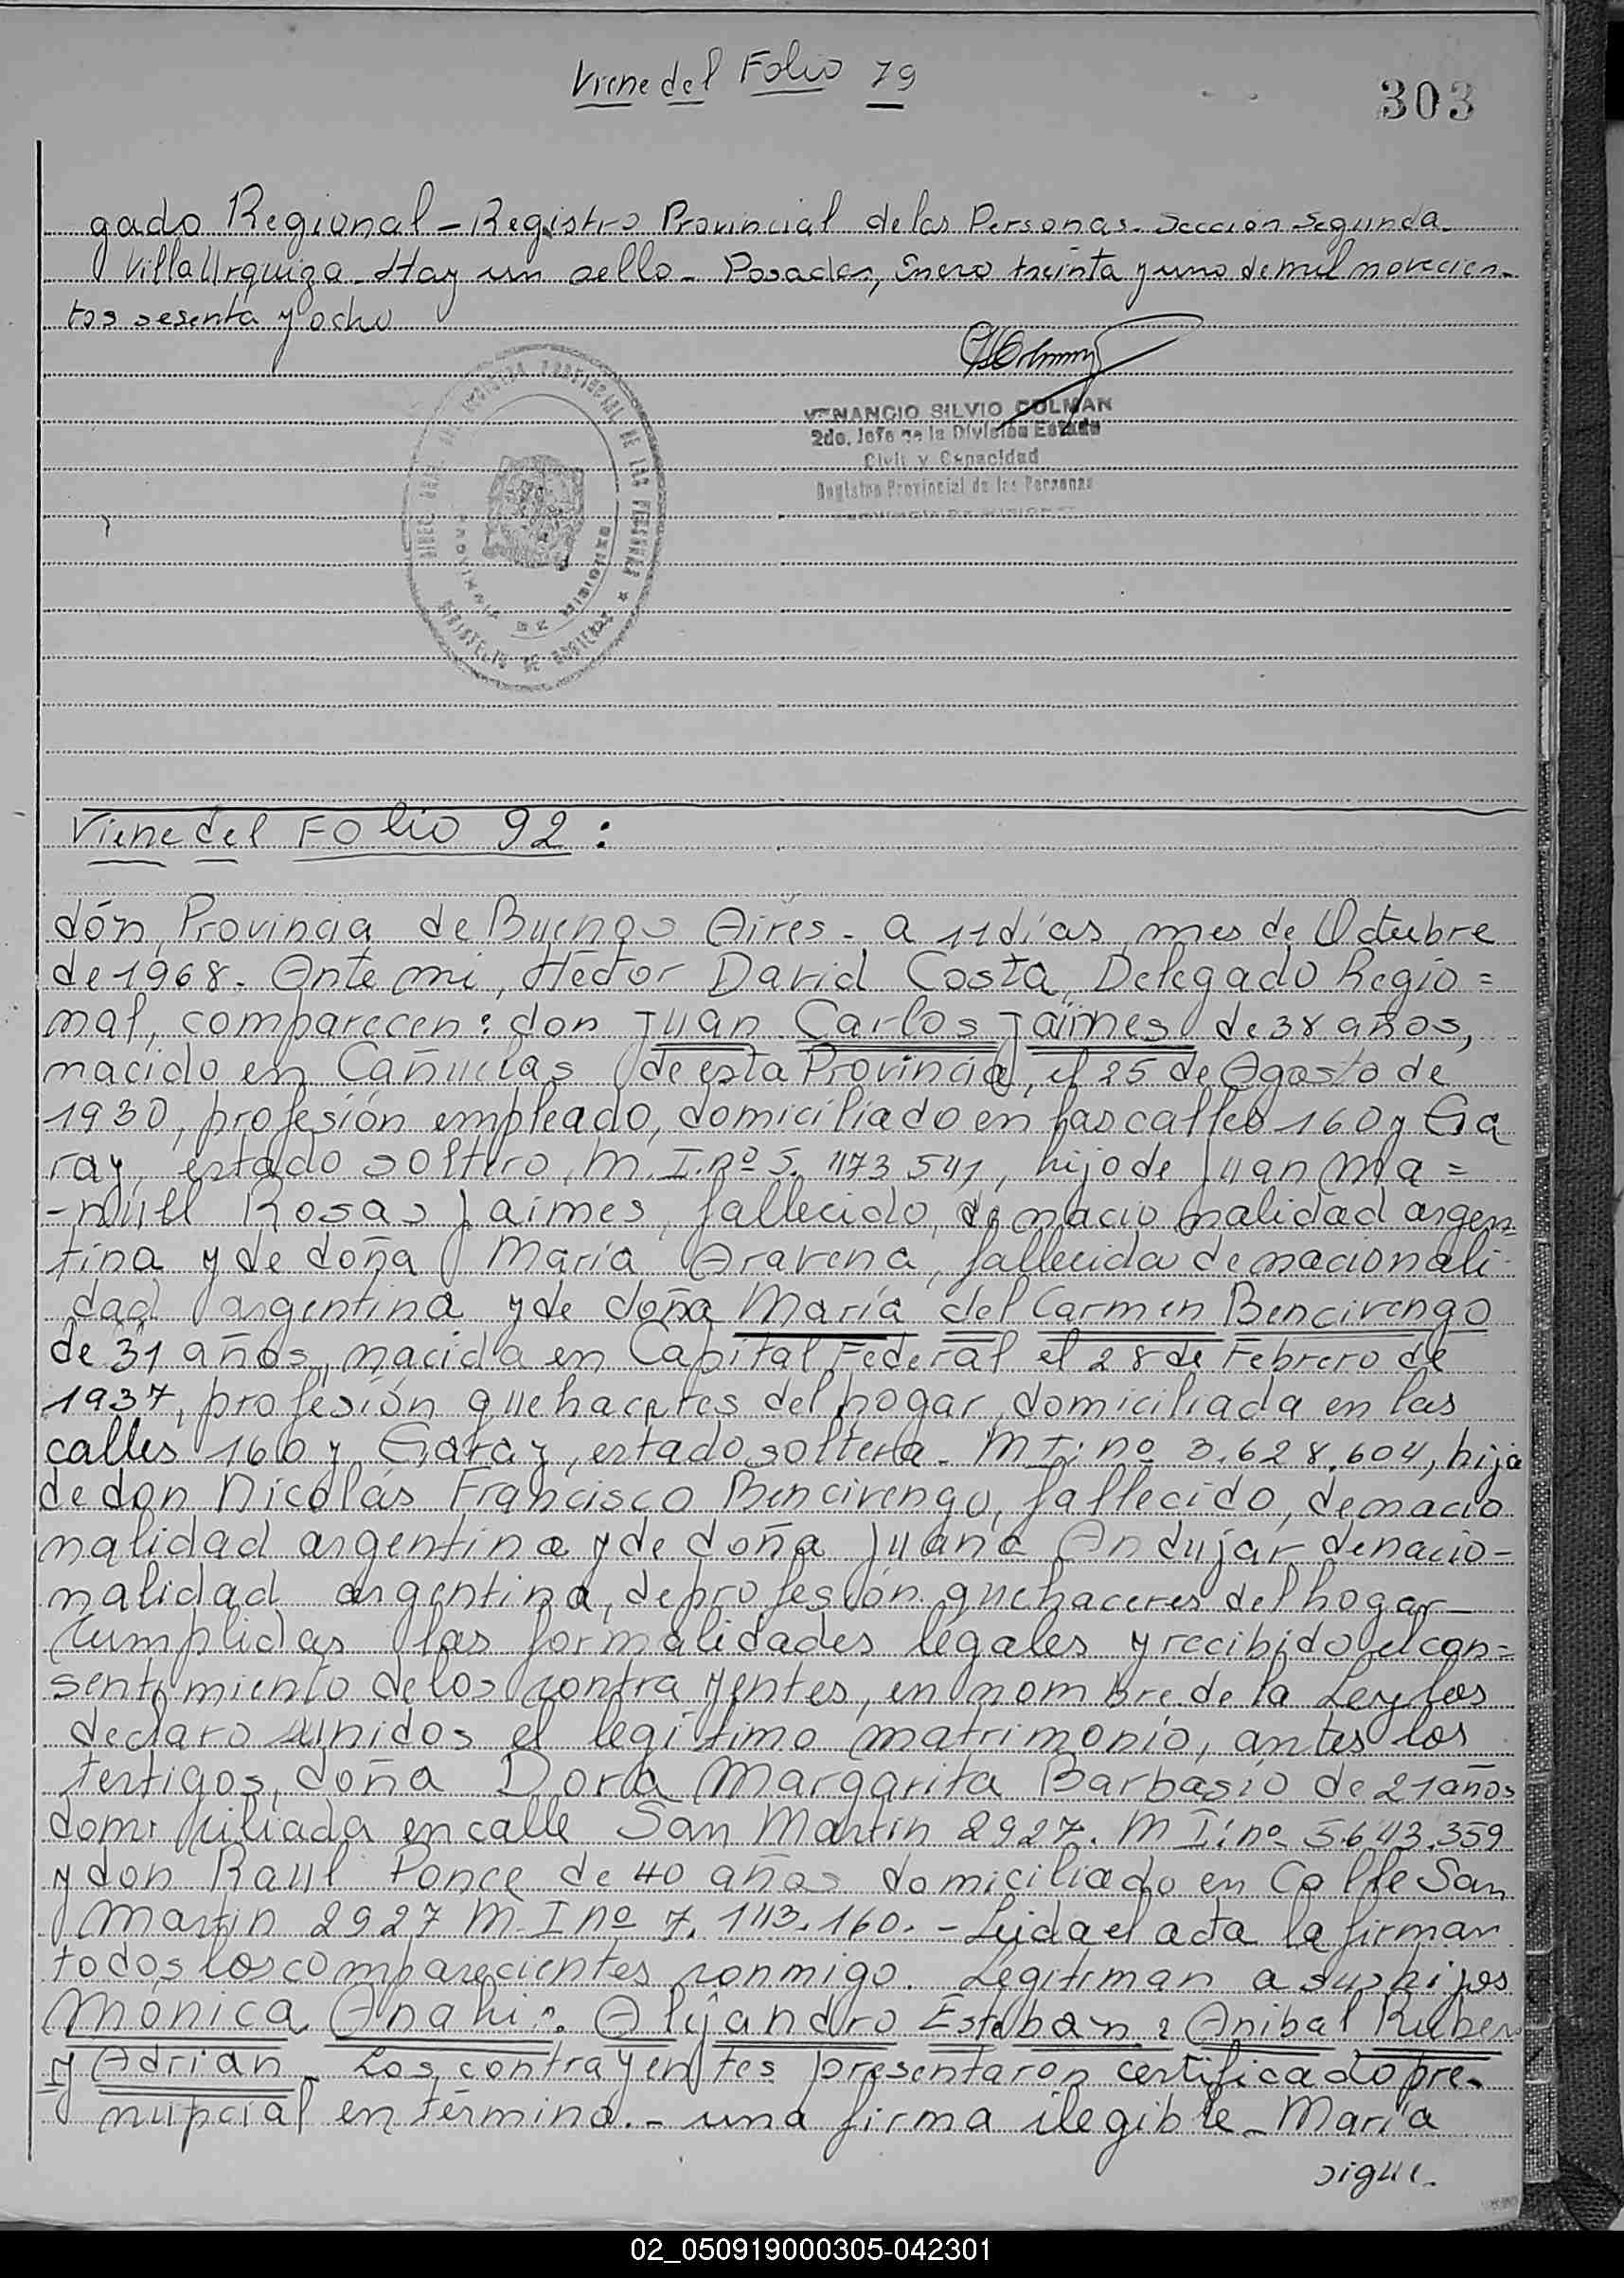 Viene del Folio 79
303
gado Regional - Registro Provincial de las Personas. Sección Segunda.
Villa Urquiza. Hay un sello - Posadas, Enero treinta y uno de mil novecien-
tos sesenta y ocho
VENANCIO SILVIO COLMAN
2do. Jefe de la División Estado
Civil y Capacidad
Registro Provincial de las Personas
PROVINCIA DE MISIONES
Viene del Folio 92 :
dón, Provincia de Buenos Aires - a 11 días, mes de Octubre
de 1968. Ante mi, Hector David Costa, Delegado Regio =
nal, comparecen: don Juan Carlos Jaimes de 38 años,
nacido en Cañuelas de esta Provincia, el 25 de Agosto de
1930, profesión empleado, domiciliado en las calles 160 y Ga
ray, estado soltero, M. I. nº 5. 473 541, hijo de Juan Ma =
-nuel Rosas Jaimes, fallecido, de nacionalidad argen=
tina y de doña María Aravena, fallecida de nacionali-
dad argentina y de doña María del Carmen Bencivengo
de 31 años, nacida en Capital Federal el 28 de Febrero de
1937, profesión quehaceres del hogar, domiciliada en las
calles 160 y Garay, estado soltera. M I: nº 3.628.604, hija
de don Nicolás Francisco Bencivengo, fallecido, de nacio
nalidad argentina y de doña Juana Andujar de nacio-
nalidad argentina, de profesión quehaceres del hogar
Cumplidas las formalidades legales y recibido el con=
sentimiento de los contrayentes, en nombre de la Ley los
declaro unidos el legítimo matrimonio, antes los
testigos, doña Dora Margarita Barbasio de 21 años
domiciliada en calle San Martín 2927. M I: nº 5.643.359
y don Raul Ponce de 40 años domiciliado en Calle San
Martin 2927 M. I nº 7. 143. 160. - Leida el acta la firman
todos los comparecientes conmigo. Legitiman a sus hijos
Mónica Anahi: Alejandro Esteban: Anibal Ruben
y Adrian - Los contrayentes presentaron certificado pre-
nupcial en término. - una firma ilegible - María
sigue.
02_050919000305-042301